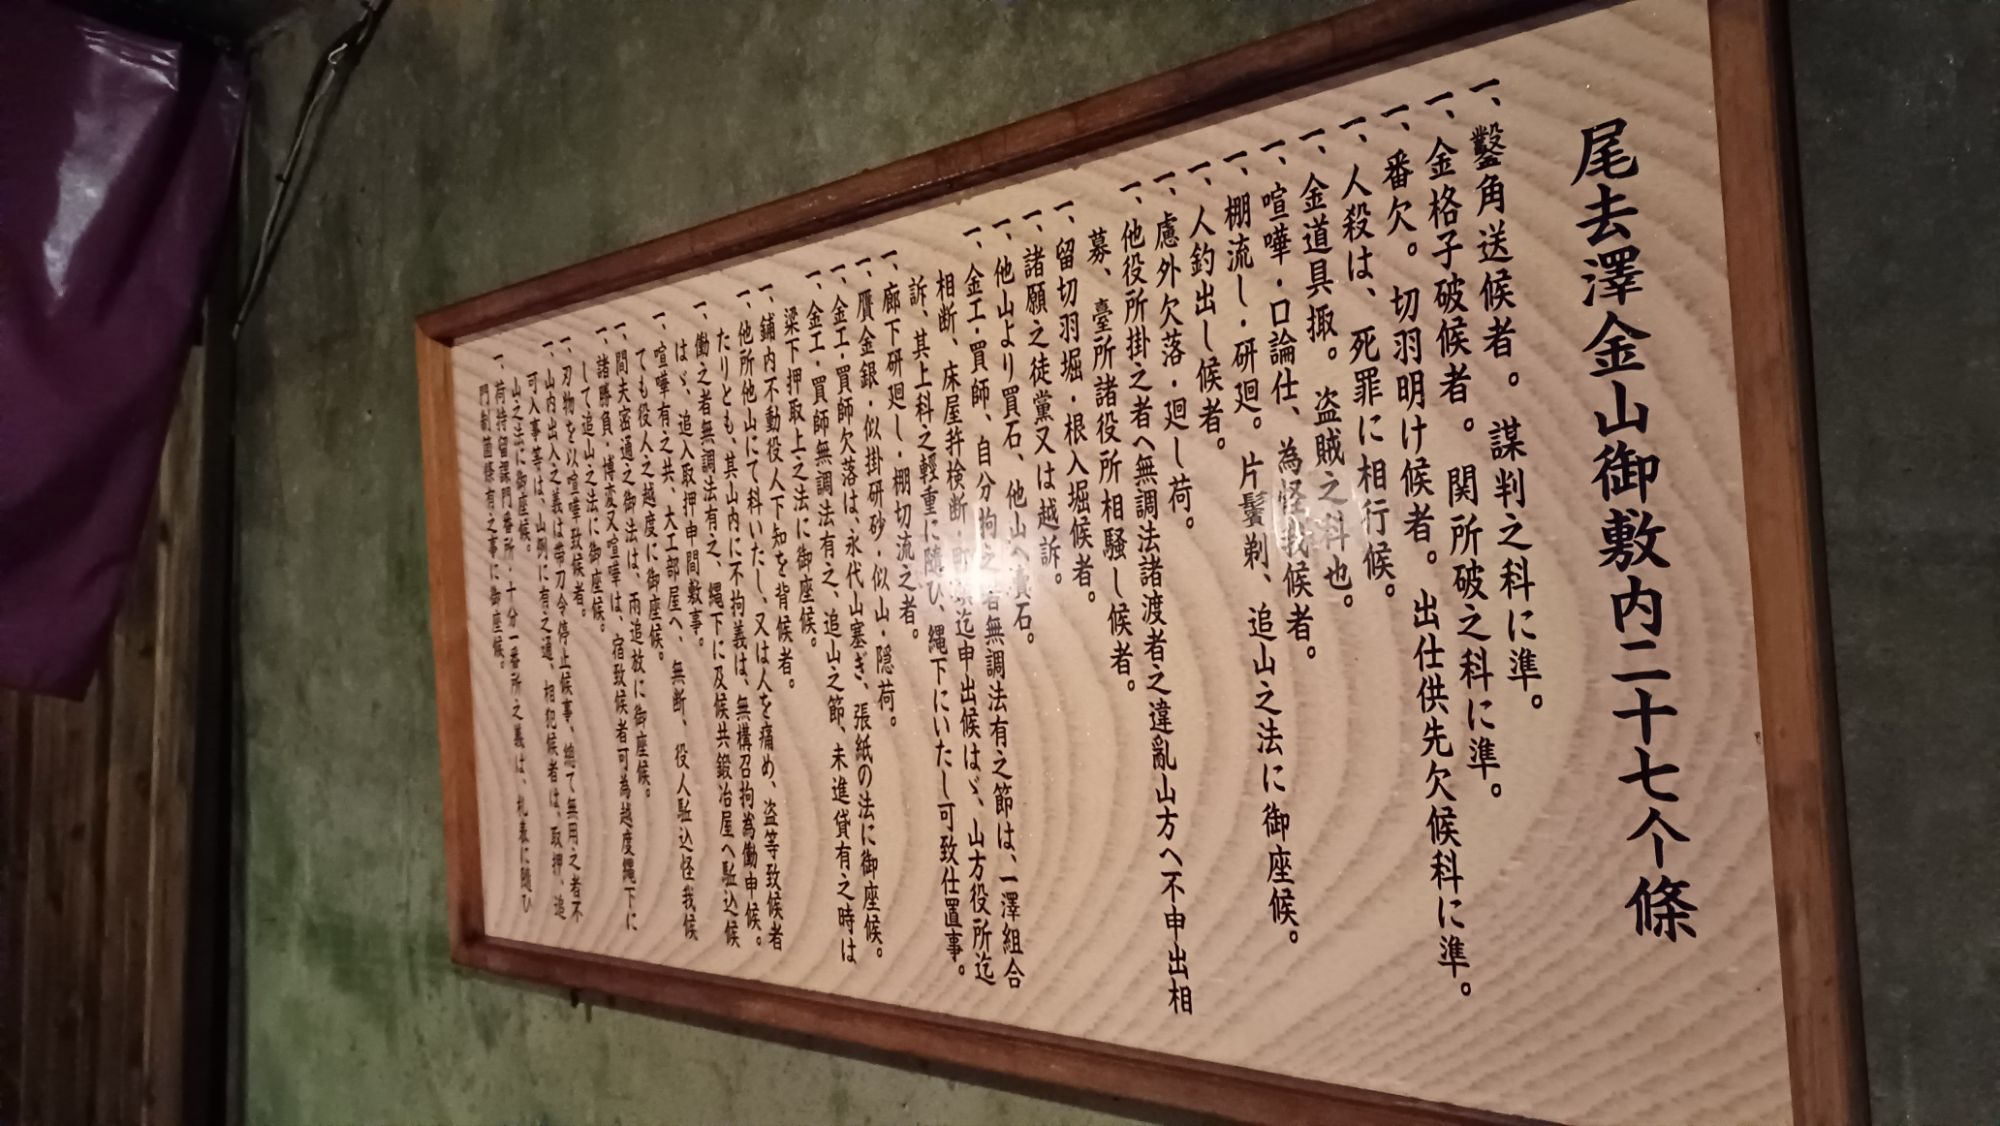 尾去澤金山御敷内二十七个條
一、鑿角送候者。謀判之科に準。
一、金格子破候者。関所破之科に準。
一、番欠。切羽明け候者。出仕供先欠候科に準。
一、人殺は、死罪に相行候。
一、金道具掫。盗賊之科也。
一、喧嘩・口論仕、為怪我候者。
一、棚流し・研廻。片鬢剃、追山之法に御座候。
一、人釣出し候者。
一、慮外欠落・廻し荷。
一、他役所掛之者へ無調法諸渡者之違亂山方へ不申出相
募、臺所諸役所相騒し候者。
一、留切羽堀・根入堀候者。
一、諸願之徒黨又は越訴。
一、他山より買石、他山へ賣石。
一、金工・買師、自分拘之者無調法有之節は、一澤組合
相断、床屋并検断・迄申出候はゞ、山方役所迄
訴、其上科之輕重に隨ひ、縄下にいたし可致仕置事。
一、廊下研廻し・棚切流之者。
一、贋金銀・似掛研砂・似山・隠荷。
一、金工・買師欠落は、永代山塞ぎ、張紙の法に御座候。
一、金工・買師無調法有之、追山之節、未進貸有之時は
梁下押取上之法に御座候。
一、鋪内不動役人下知を背候者。
一、他所他山にて科いたし、又は人を痛め、盗等致候者
たりとも、其山内に不拘義は、無構召拘為働申候。
一、働之者無調法有之、縄下に及候共鍛冶屋へ駈込候
はゞ、追入取押申間敷事。
一、喧嘩有之共、大工部屋へ、無断、役人駈込怪我候
ても役人之越度に御座候。
一、間夫密通之御法は、両追放に御座候。
一、諸勝負・博変又喧嘩は、宿致候者可為越度縄下に
して追山之法に御座候。
一、刃物を以喧嘩致候者。
一、山内出入之義は帯刀令停止候事、總て無用之者不
可入事等は、山例に有之通、相犯候者は、取押、追
山之法に御座候。
一、荷持留課門番所・十分一番所之義は、札表に隨ひ
門制箇條有之事に御座候。